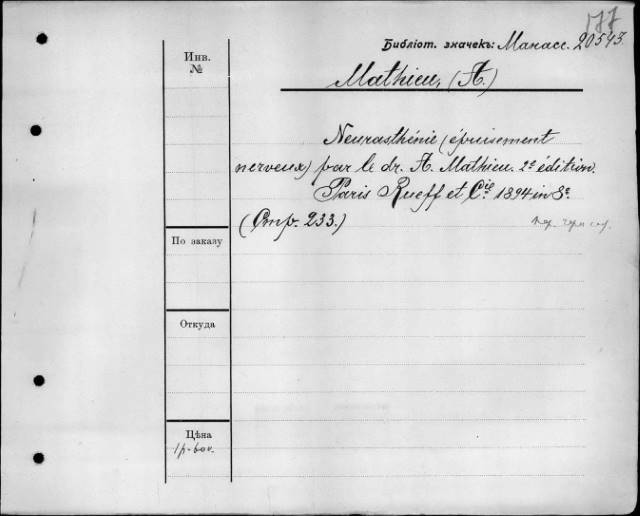 177
Библіот. значекъ: Манасс. 20543.
Инв. №
Mathieu, (A.)
Neurasthénie (épuisement
nerveux) par le dr. A. Mathieu. 2e édition.
Paris Rueff et Cie 1894 in 8º.
(Стр. 233.)
По заказу
Откуда
Цѣна
1р-60к.